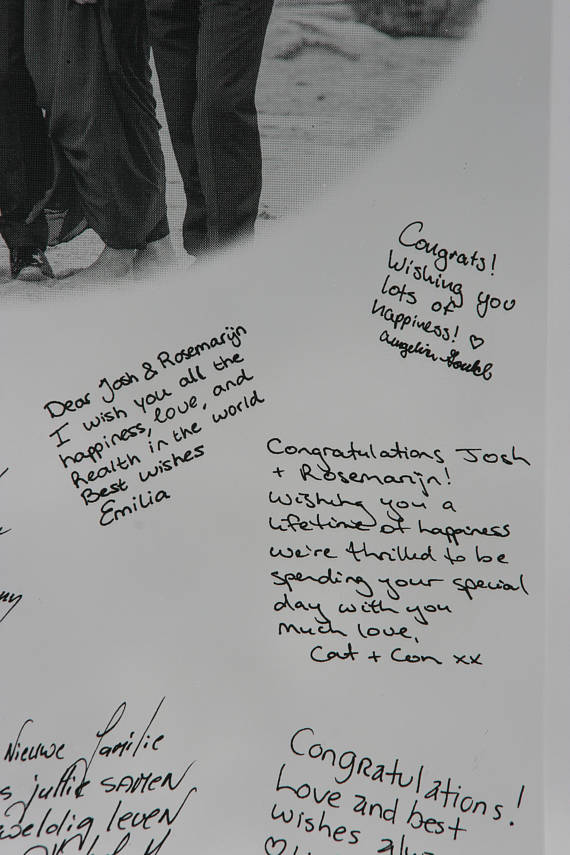 Congrats!
Wishing you
lots of
happiness! ♡
Dear Josh & Rosemarijn
I wish you all the
happiness, love, and
health in the world
Best wishes
Emilia
Congratulations Josh
+ Rosemarijn!
Wishing you a
lifetime of happiness
we're thrilled to be
spending your special
day with you
Much love,
Cat + Con xx
Nieuwe familie
jullie SAMEN
leven
Congratulations!
Love and best
wishes